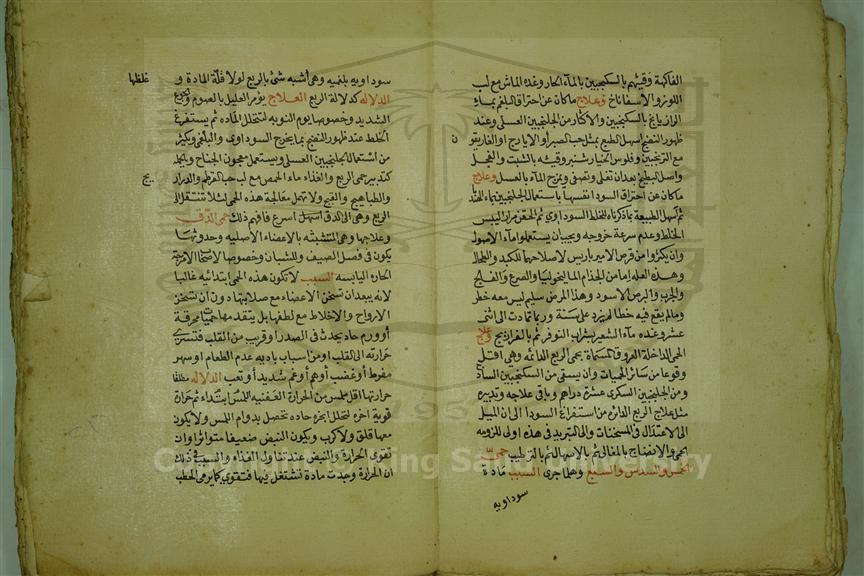 الفاكهة وقيئهم بالسكنجبين بالمآء الحار وغذه الماش مع لب
اللوز والاسفاناخ وعلاج ما كان عن احتراق البلغم بماء
الرازيانج بالسكنجبين والاكثار من الجلنجبين العسلى وعند
ظهور النضج اسهل الطبع بمثل حب الصبر او الايارج او الغاريقون
مع الترنجبين وفلوس الخيار شنبر وقيئه بالشبت والفجل
واصل البطيخ بعد ان تغلى وتصفى ويمزج المآء بالعسل وعلاج
ما كان عن احتراق السودا نفسها باستعمال الجلنجبين بماء الهندبا
ثم اسهل الطبيعة بما ذكرناه للخلط السوداوى ثم الحقن مرارا ليبس
الخلط وعدم سرعة خروجه ويجب ان يستعملوا ماء الاصول
وان يكثروا من قرص الامير باريس لاصلاحها للكبد والطحال
وهذه العله امان من الجذام الماليخوليا والصرع والفالج
والجرب والبرص الاسود وهذا المرض سليم ليس معه خطر
وما لم يقع فيه خطا لم يزد على سنة وربما تمادت الى اثنى
عشر وغذه مآء الشعير بشراب النوفر ثم بالفراريج وعلاج
الحمى الداخلة العروق المسماة بحمى الربع الدائمه وهى اقل
وقوعا من سائر الحميات وان يسقى من السكنجبين الساذج
ومن الجلنجبين السكرى عشرة دراهم وباقى علاجه وتدبيره
مثل علاج الربع الدائره من استفراغ السودا الى ان الميل
الى الاعتدال فى المسخنات والى التبريد فى هذه اولى للزوم
الحمى والانضاج بالمغالى ثم بالاسهال ثم بالترطيب حمى
الخمس والسدس والسبع وهلما جرى السبب مادة
سوداويه
سوداويه بلغميه وهى أشبه شئ بالربع لولا قلّة المادة و غلظها
الدلاله كدلالة الربع العلاج يؤمر العليل بالصوم والجوع
الشديد وخصوصا يوم النوبه لتتحلل المادّه ثم يستفرغ
الخلط عند ظهور النضج بما يخرج السوداوى والبلغمى ويكثر
من استعمال الجلنجبين العسلى ويستعمل معجون الجناح وبالجمله
كتدبير حمى الربع والغذاء ماء الحمص مع لب حب القرطم والدراريج
والطباهيج والقبج ولا تهمل معالجة هذه الحمى لئلا تنتقل الى
الربع وهى الى الدق اسهل اسرع فافهم ذلك حمى الدق
وعلاجها وهى المتشبثه بالاعضاء الاصليه وحدوثها
يكون فى فصل الصيف وللشبان وخصوصا لاصحاب الامزجة
الحاره اليابسه السبب لا تكون هذه الحمى ابتدائيه غالبا
لانه يبعد ان تسخن الاعضاء مع صلابتها دون ان تسخن
الارواح والاخلاط مع لطفها بل يتقدمها حميات محرقة
أو ورم حاد يحدث فى الصدر او قريب من القلب فتسرى
حرارته الى القلب او من اسباب باديه عدم الطعام او سهر
مفرط أو غضب أو هم أو غم شديد أو تعب الدلاله مطلقا
حرارتها اقل ملمس من الحرارة العفنيه اللمس ابتداء ثم حرارة
قوية اخره لتحلل ابخره حاده تحصل بدوام اللمس ولا يكون
معها قلق ولا كرب ويكون النبض ضعيفا متواترا وان
تقوى الحرارة والنبض عند تناول الغذاء والسبب فى ذلك
ان الحرارة وجدت مادة تشتعل فيها فتقوى كما يرمى الحطب
Copyright © King Saud University
1957